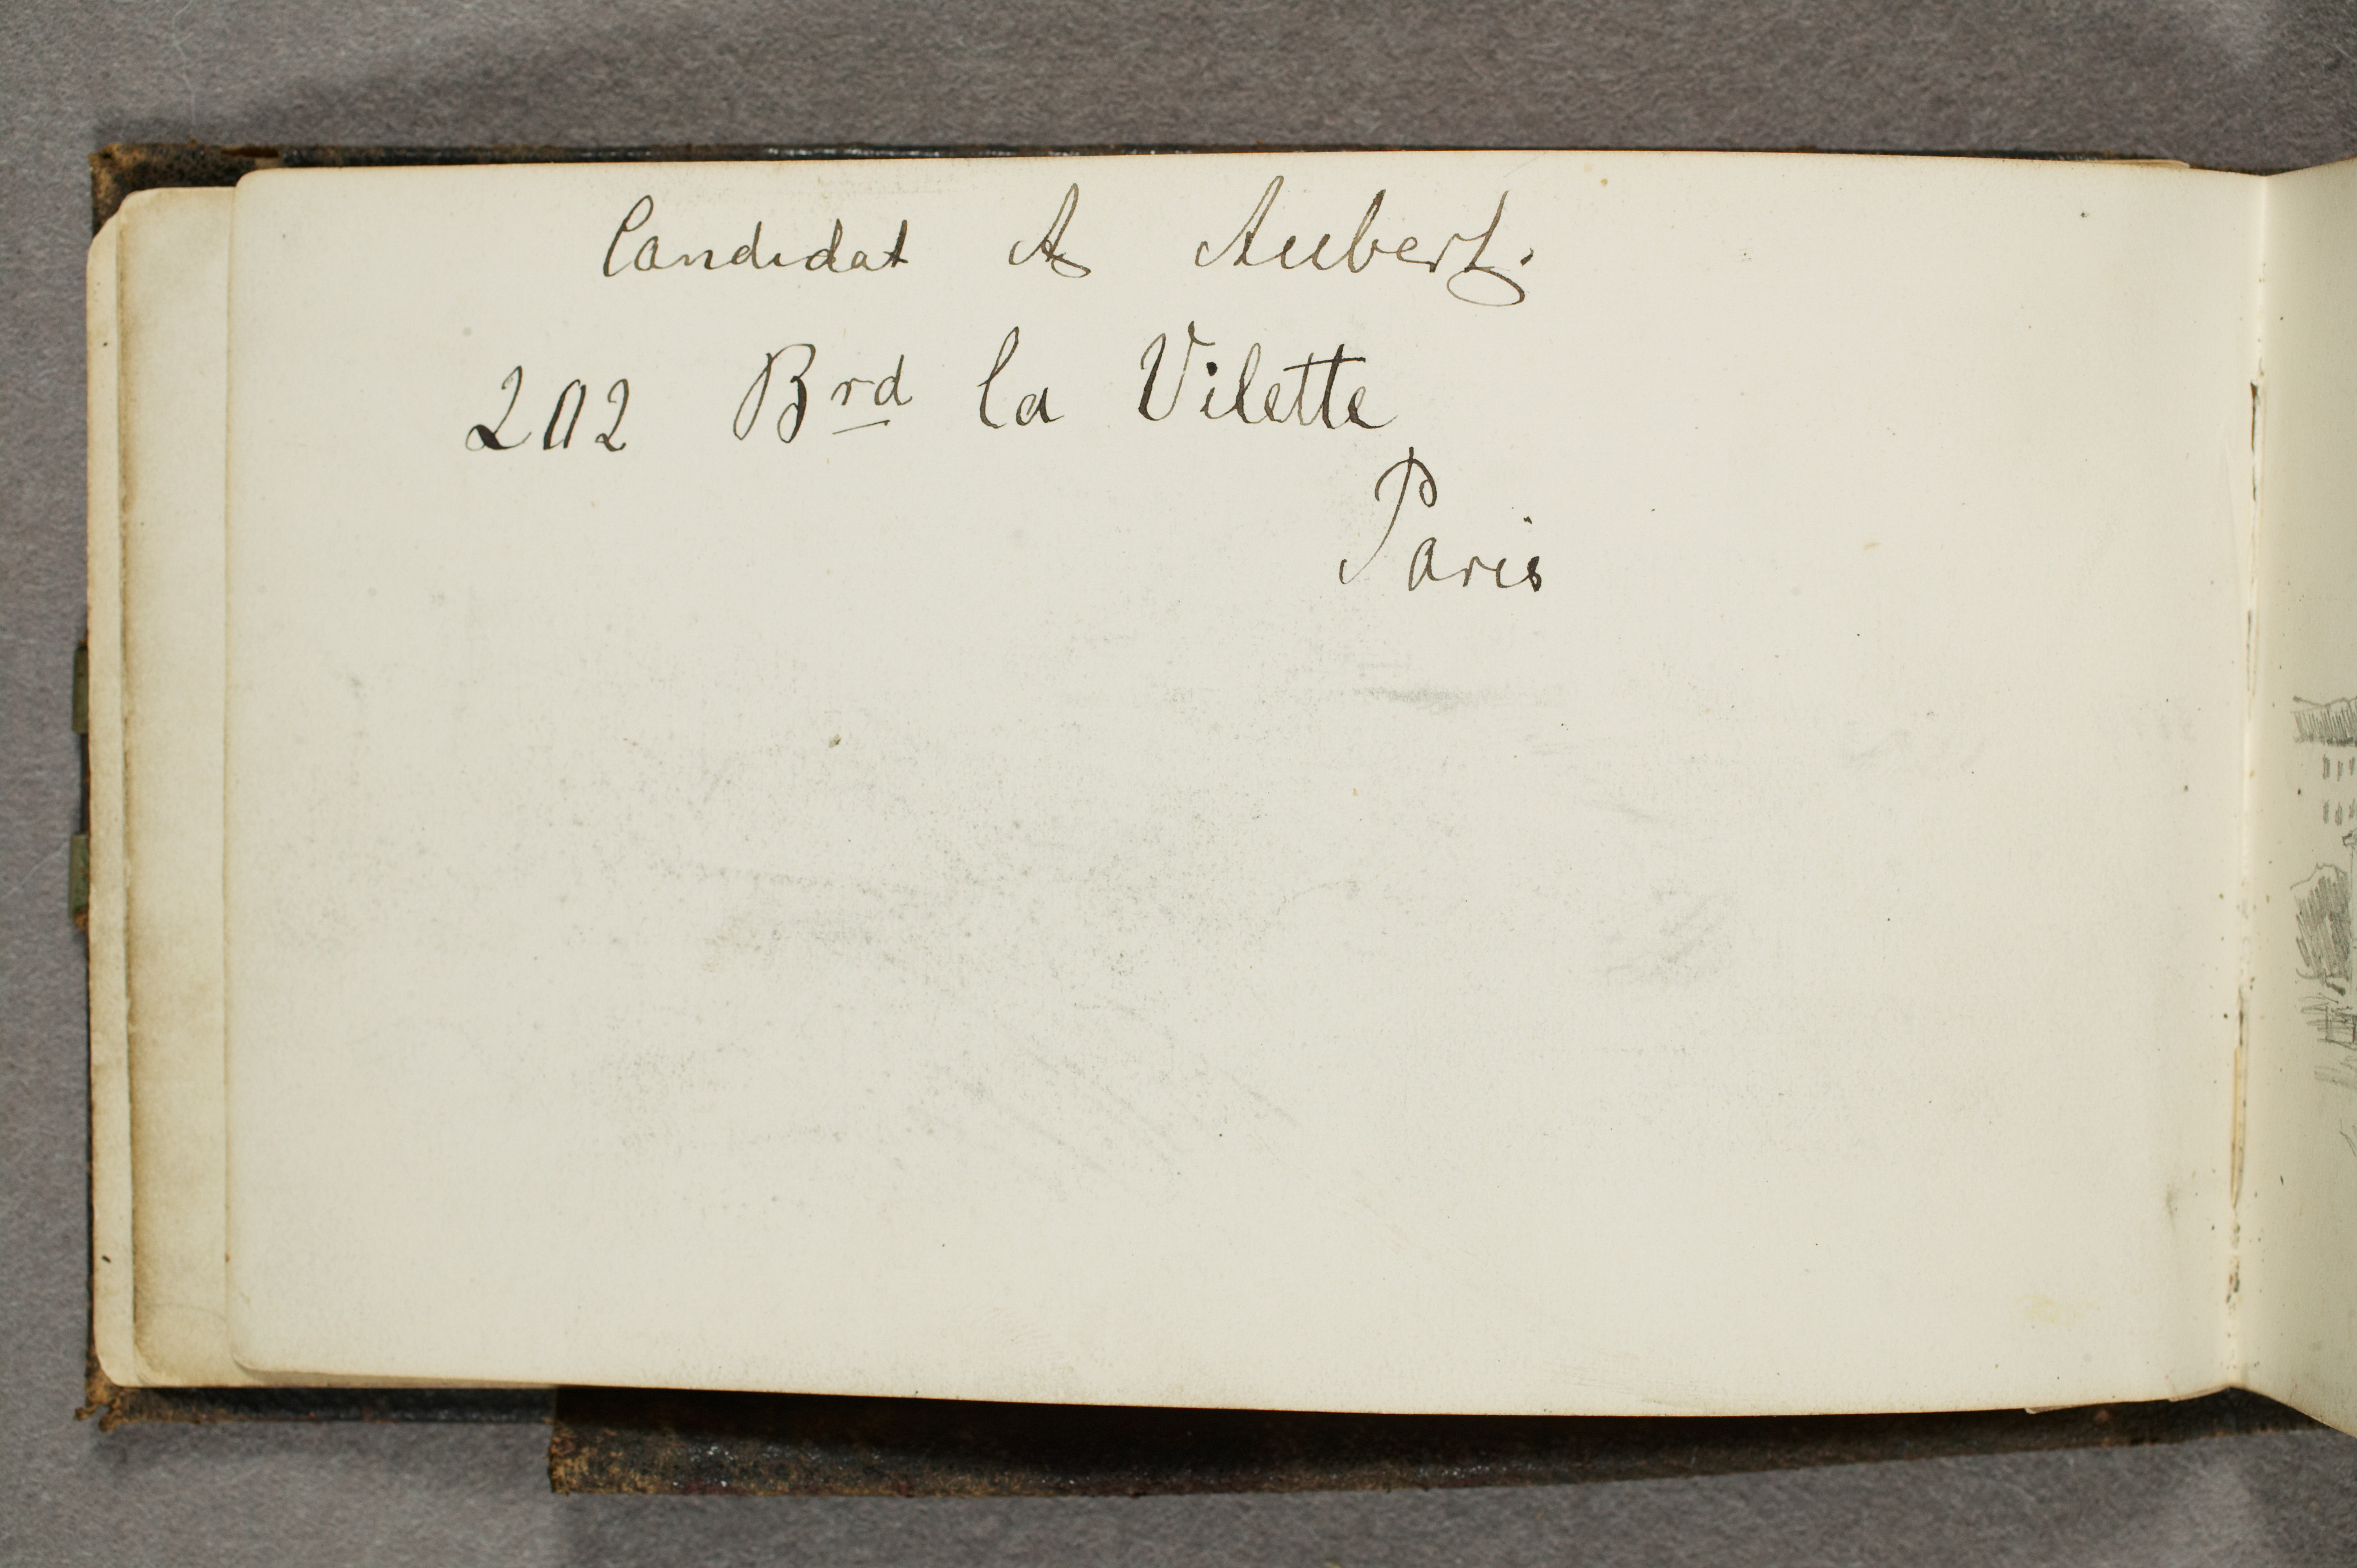 Candidat A Aubert.
202 Brd la Vilette
Paris